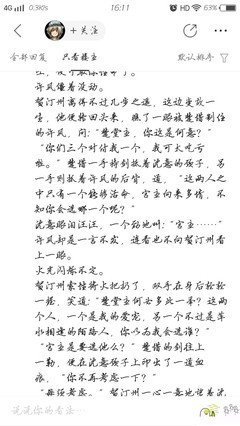 4G 0.3K/s 16:11 HD 63%
+ 关注
全部回复 只看楼主 默认排序
许风僵着没动。
贺汀州离得不过几步之遥，这边变故一
生，他便转回头来，瞧了一眼被楚借制住
的许风，问：“楚堂主，你这是何意？”
“你们三个对付我一个，我可太吃亏
啦。”楚借一手将剑抵着沈意的颈子，另
一手则抵着许风的后背，道，“这两人之
中只有一个能够活命，宫主向来多情，不
知你会选哪一个呢？”
沈意眼泪汪汪，一个劲地叫：“宫主……”
许风却是一言不发，连看也不向贺汀州看
上一眼。
火光闪烁不定。
贺汀州索性将火把扔了，双手在身后轻轻
一搭，笑道：“楚堂主何必多此一举？这两
个人，一个是我的爱宠，另一个不过是萍
水相逢的陌路人，你以为我会选谁？”
“宫主是要选他么？”楚借的剑往上
一勒，便在沈意颈子上印出了一道血
痕，“你不再考虑一下？”
说说你的看法...